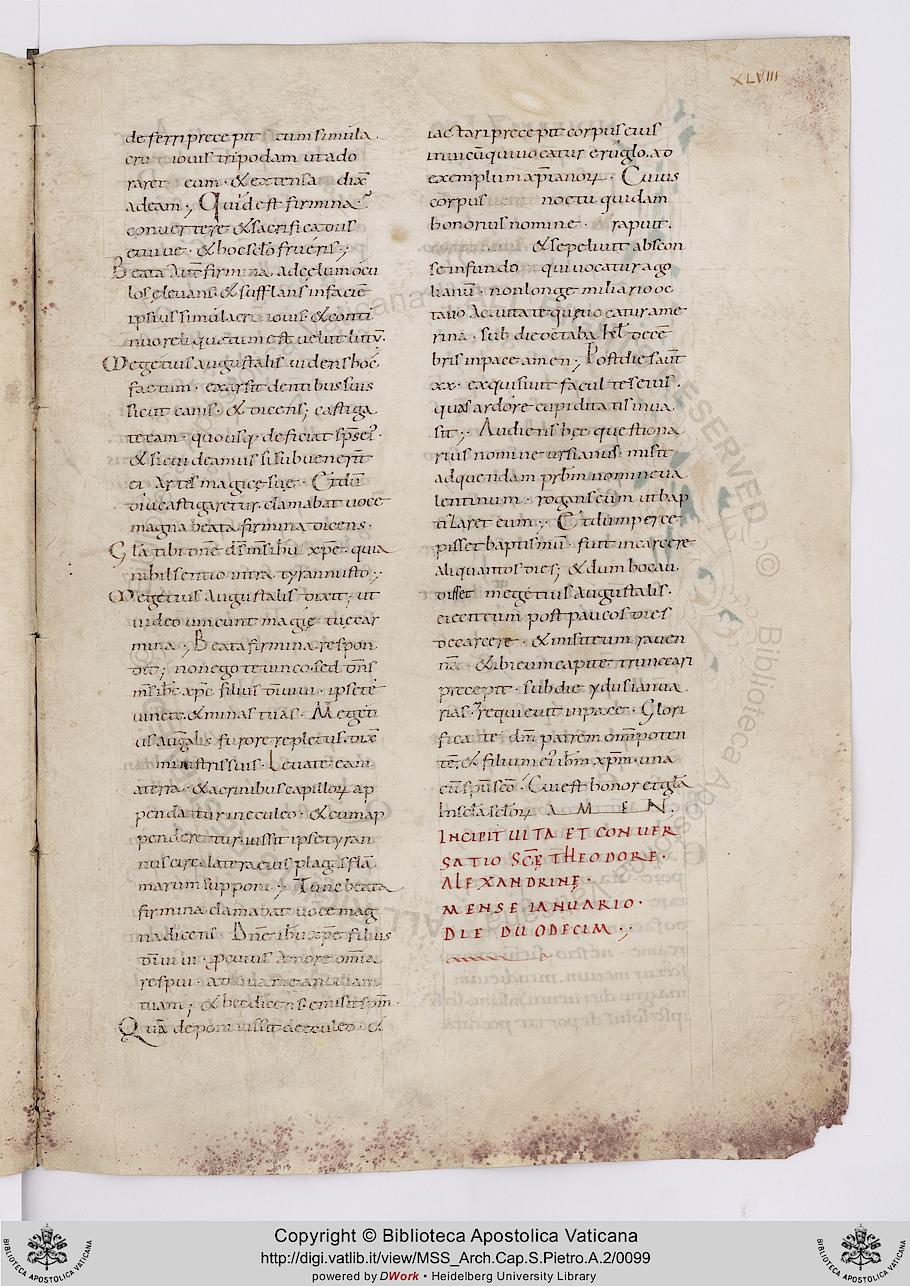 XLVIII
deferri precepit cum simula
cru iouis tripodam ut ado
raret eum · & extensa dix̄
ad eam ; Quid est firmina
conuertere & sacrifica diis
et uiue · & hoc sc̄lo frueris ;
Beata aut̄ firmina, ad cęlum ocu
los eleuans & sufflans in faciē
ipsius simulacri iouis & conti
nuo reliquetum est uelut lutū.
Megetius augustalis uidens hoc
factum · exarsit dentibus suis
sicut canis · & dicens ; castiga
te eam · quousq; deficiat sp̄s ei ·
& sic uideamus si subuenerīt
ei artes magicę suę · Et dū
diu castigaretur clamabat uoce
magna beata firmina dicens ·
Gl̄a tibi dn̄e ds̄ ms̄ ihū xp̄e · quia
nihil sentio intra tyrannus to ;
Megetius Augustalis dixit ; ut
uideo uincunt magię tuę car
mina · Beata firmina respon
dit ; non ego te uinco · sed dn̄s
ms̄ ih̄c xp̄c filius dī uiui · ipse te
uincet · & minas tuas · Megeti
us augalis furore repletus · dix̄
ministris suis · Leuate eam
a terra · & a crinibus capillor̄ ap
pendatur in eculeo · & cum ap
penderetur iussit ipse tyran
nus circa latera eius plagas flā
marum supponi ; Tunc beata
firmina clamabat uoce mag
na dicens Dn̄e ihū xp̄e filius
dī uiui · p̱ cuius amore omīa
respui · adiuua me ancillam
tuam ; & hec dicens emisit sp̄m ·
Quā deponi iussit de eculeo · &
iactari precepit corpus eius
in uicū qui uocatur eruglo · ad
exemplum xp̄ianor̄ · Cuius
corpus noctu quidam
honorius nomine · rapuit ·
& sepeliuit abscon
se in fundo qui uocatur ago
lianū · non longe miliario oc
tauo a ciuitate que uocatur ame
rina · sub die octaba kl̄ decē
bris in pace amen ; Post dies aut̄
xx · exquisiuit facultes eius ·
quas ardore cupiditatis inua
sit ; Audiens hęc questiona
rius nomine ursianus · misit
ad quendam prb̄m nomine ua
lentinum · rogans eum ut bap
tizaret eum ; Et dum perce
pisset baptismū · fuit in carcere
aliquantos dies ; & dum hoc au
disset megetius augustalis ·
eicit eum post paucos dies
de carcere · & misit eum rauen
nā · & ibi eum capite truncari
precepit · sub die ydus ianua
rias · requieuit in pace · Glori
ficate dm̄ patrem omīpoten
tē, & filium ei ihm̄ xp̄m · una
cū sp̄u sc̄o · Cui est honor et gl̄a
In sc̄la sc̄lor̄ A M E N ·
INCIPIT UITA ET CONUER
SATIO SCĘ THEODORE ·
ALEXANDRINĘ ·
MENSE IANUARIO ·
DIE DUODECIM ·,
Copyright © Biblioteca Apostolica Vaticana
http://digi.vatlib.it/view/MSS_Arch.Cap.S.Pietro.A.2/0099
powered by DWork • Heidelberg University Library